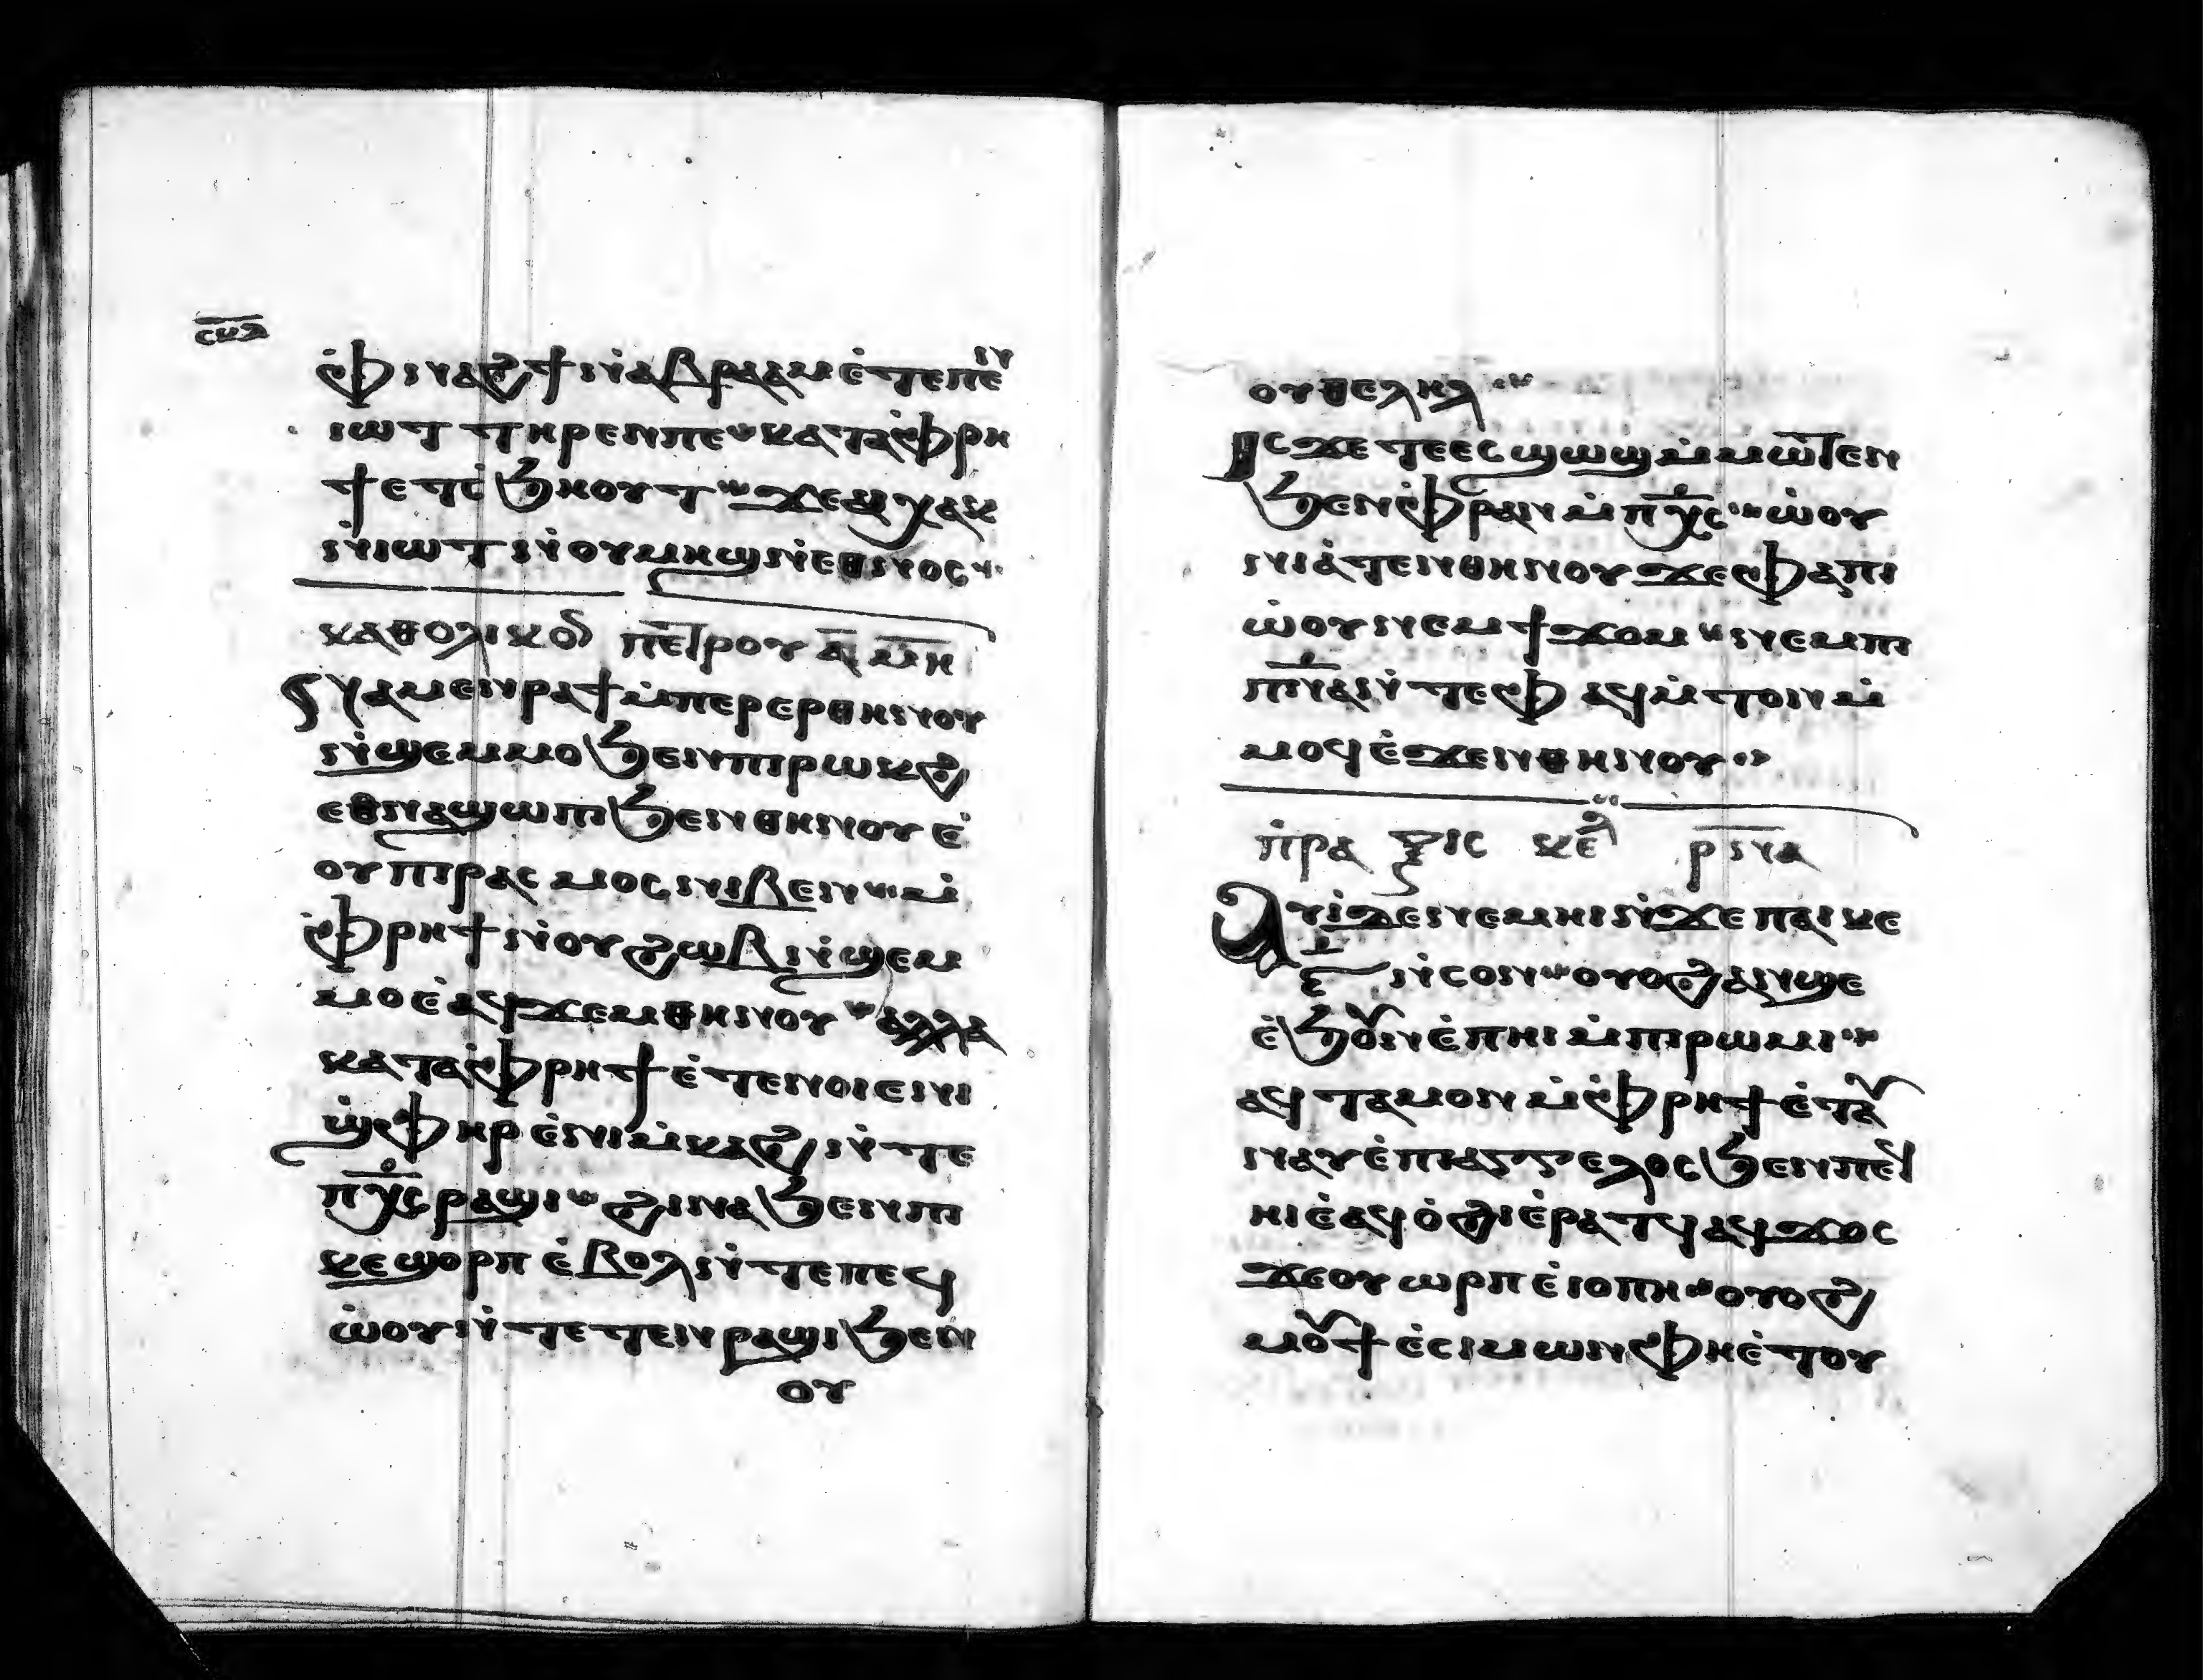 ⲥⲙⲇ
ⲫ̇ⲛⲁϩϯⲛⲁⲃⲣⲁⲁⲙⲉ̇ⲧⲉⲡⲉⲛ
ⲓⲱⲧ ⲧⲏⲣⲉⲛⲡⲉ ⲕⲁⲧⲁⲫ̇ⲣⲏ
ϯⲉⲧⲥ̇ϧⲏⲟⲩⲧ ϫⲉⲁⲓⲭⲁⲕ
ⲛⲓⲱⲧⲛ̇ⲟⲩⲙⲏϣⲛ̇ⲉⲑⲛⲟⲥ
ⲕⲁⲑⲟⲗⲓⲕⲟⲛ ⲡⲉⲧⲣⲟⲩ ⲁ̅ ⲙ̅ⲏ̅
ⲛⲁⲙⲉⲛⲣⲁϯⲙ̇ⲡⲉⲣⲉⲣⲑⲏⲛⲟⲩ
ⲛ̇ϣⲉⲙⲙⲟϧⲉⲛⲡⲓⲣⲱⲕϩ
ⲉⲑⲛⲁϣⲱⲡⲓϧⲉⲛⲑⲏⲛⲟⲩⲉ̇
ⲟⲩⲡⲓⲣⲁⲥⲙⲟⲥⲛⲱⲧⲉⲛ ⲙ̇
ⲫ̇ⲣⲏϯⲛ̇ⲟⲩϩⲱⲃⲛ̇ϣⲉⲙ
ⲙⲟⲉ̇ⲁϥϫⲉⲙⲑⲏⲛⲟⲩ ⲁⲗⲗⲁ
ⲕⲁⲧⲁⲫ̇ⲣⲏϯⲉ̇ⲧⲉⲛⲟⲓⲉⲛⲓ
ϣ̇ⲫⲏⲣ ⲉ̇ⲛⲓⲙ̇ⲕⲁϩ ⲛ̇ⲧⲉ
ⲡⲭ̅ⲥ̅ⲣⲁϣⲓ ϩⲓⲛⲁϧⲉⲛⲡⲓ
ⲕⲉϣⲟⲣⲡ ⲉ̇ⲃⲟⲗⲛ̇ⲧⲉⲡⲉϥ
ⲱ̇ⲟⲩⲛ̇ⲧⲉⲧⲉⲛⲣⲁϣⲓϧⲉⲛ
ⲟⲩ
ⲟⲩⲑⲉⲗⲏⲗ
ⲓⲥϫⲉⲧⲉⲉⲥϣⲱϣⲙ̇ⲙⲱⲧⲉⲛ
ϧⲉⲛⲫ̇ⲣⲁⲛⲙ̇ⲡⲭ̅ⲥ̅ ⲱ̇ⲟⲩ
ⲛⲓⲁ̇ⲧⲉⲛⲑⲏⲛⲟⲩϫⲉⲫ̇ⲁⲡⲓ
ⲱ̇ⲟⲩⲛⲉⲙϯϫⲟⲙ ⲛⲉⲙⲡⲓ
ⲡ̅ⲛ̅ⲁ̅ⲛ̇ⲧⲉⲫϯ ⲁϥⲙ̇ⲧⲟⲛⲙ̇
ⲙⲟϥⲉ̇ϫⲉⲛⲑⲏⲛⲟⲩ
ⲡ̇ⲣⲁⲝⲓⲥ ⲕⲉⲫ ⲣ̅ⲛ̅ⲁ̅
ⲁⲩⲓ̇ⲇⲉⲛⲉⲙⲏⲓⲛ̇ϫⲉⲡⲁⲓⲕⲉ
ⲋ̅ ⲛ̇ⲥⲟⲛ ⲟⲩⲟϩⲁⲛϣⲉ
ⲉ̇ϧⲟⲩⲛⲉ̇ⲡⲏⲓⲙ̇ⲡⲓⲣⲱⲙⲓ
ⲁϥⲧⲁⲙⲟⲛⲙ̇ⲫ̇ⲣⲏϯⲉ̇ⲧⲁϥ
ⲛⲁⲩⲉ̇ⲡⲓⲁⲅⲅⲉⲗⲟⲥϧⲉⲛⲡⲉϥ
ⲏⲓⲉ̇ⲁϥⲟ̇ϩⲓⲉ̇ⲣⲁⲧϥⲁϥϫⲟⲥ
ϫⲉⲟⲩⲱⲣⲡⲉ̇ⲓⲟⲡⲏ ⲟⲩⲟϩ
ⲙⲟⲩϯⲉ̇ⲥⲓⲙⲱⲛⲫⲏⲉ̇ⲧⲟⲩ